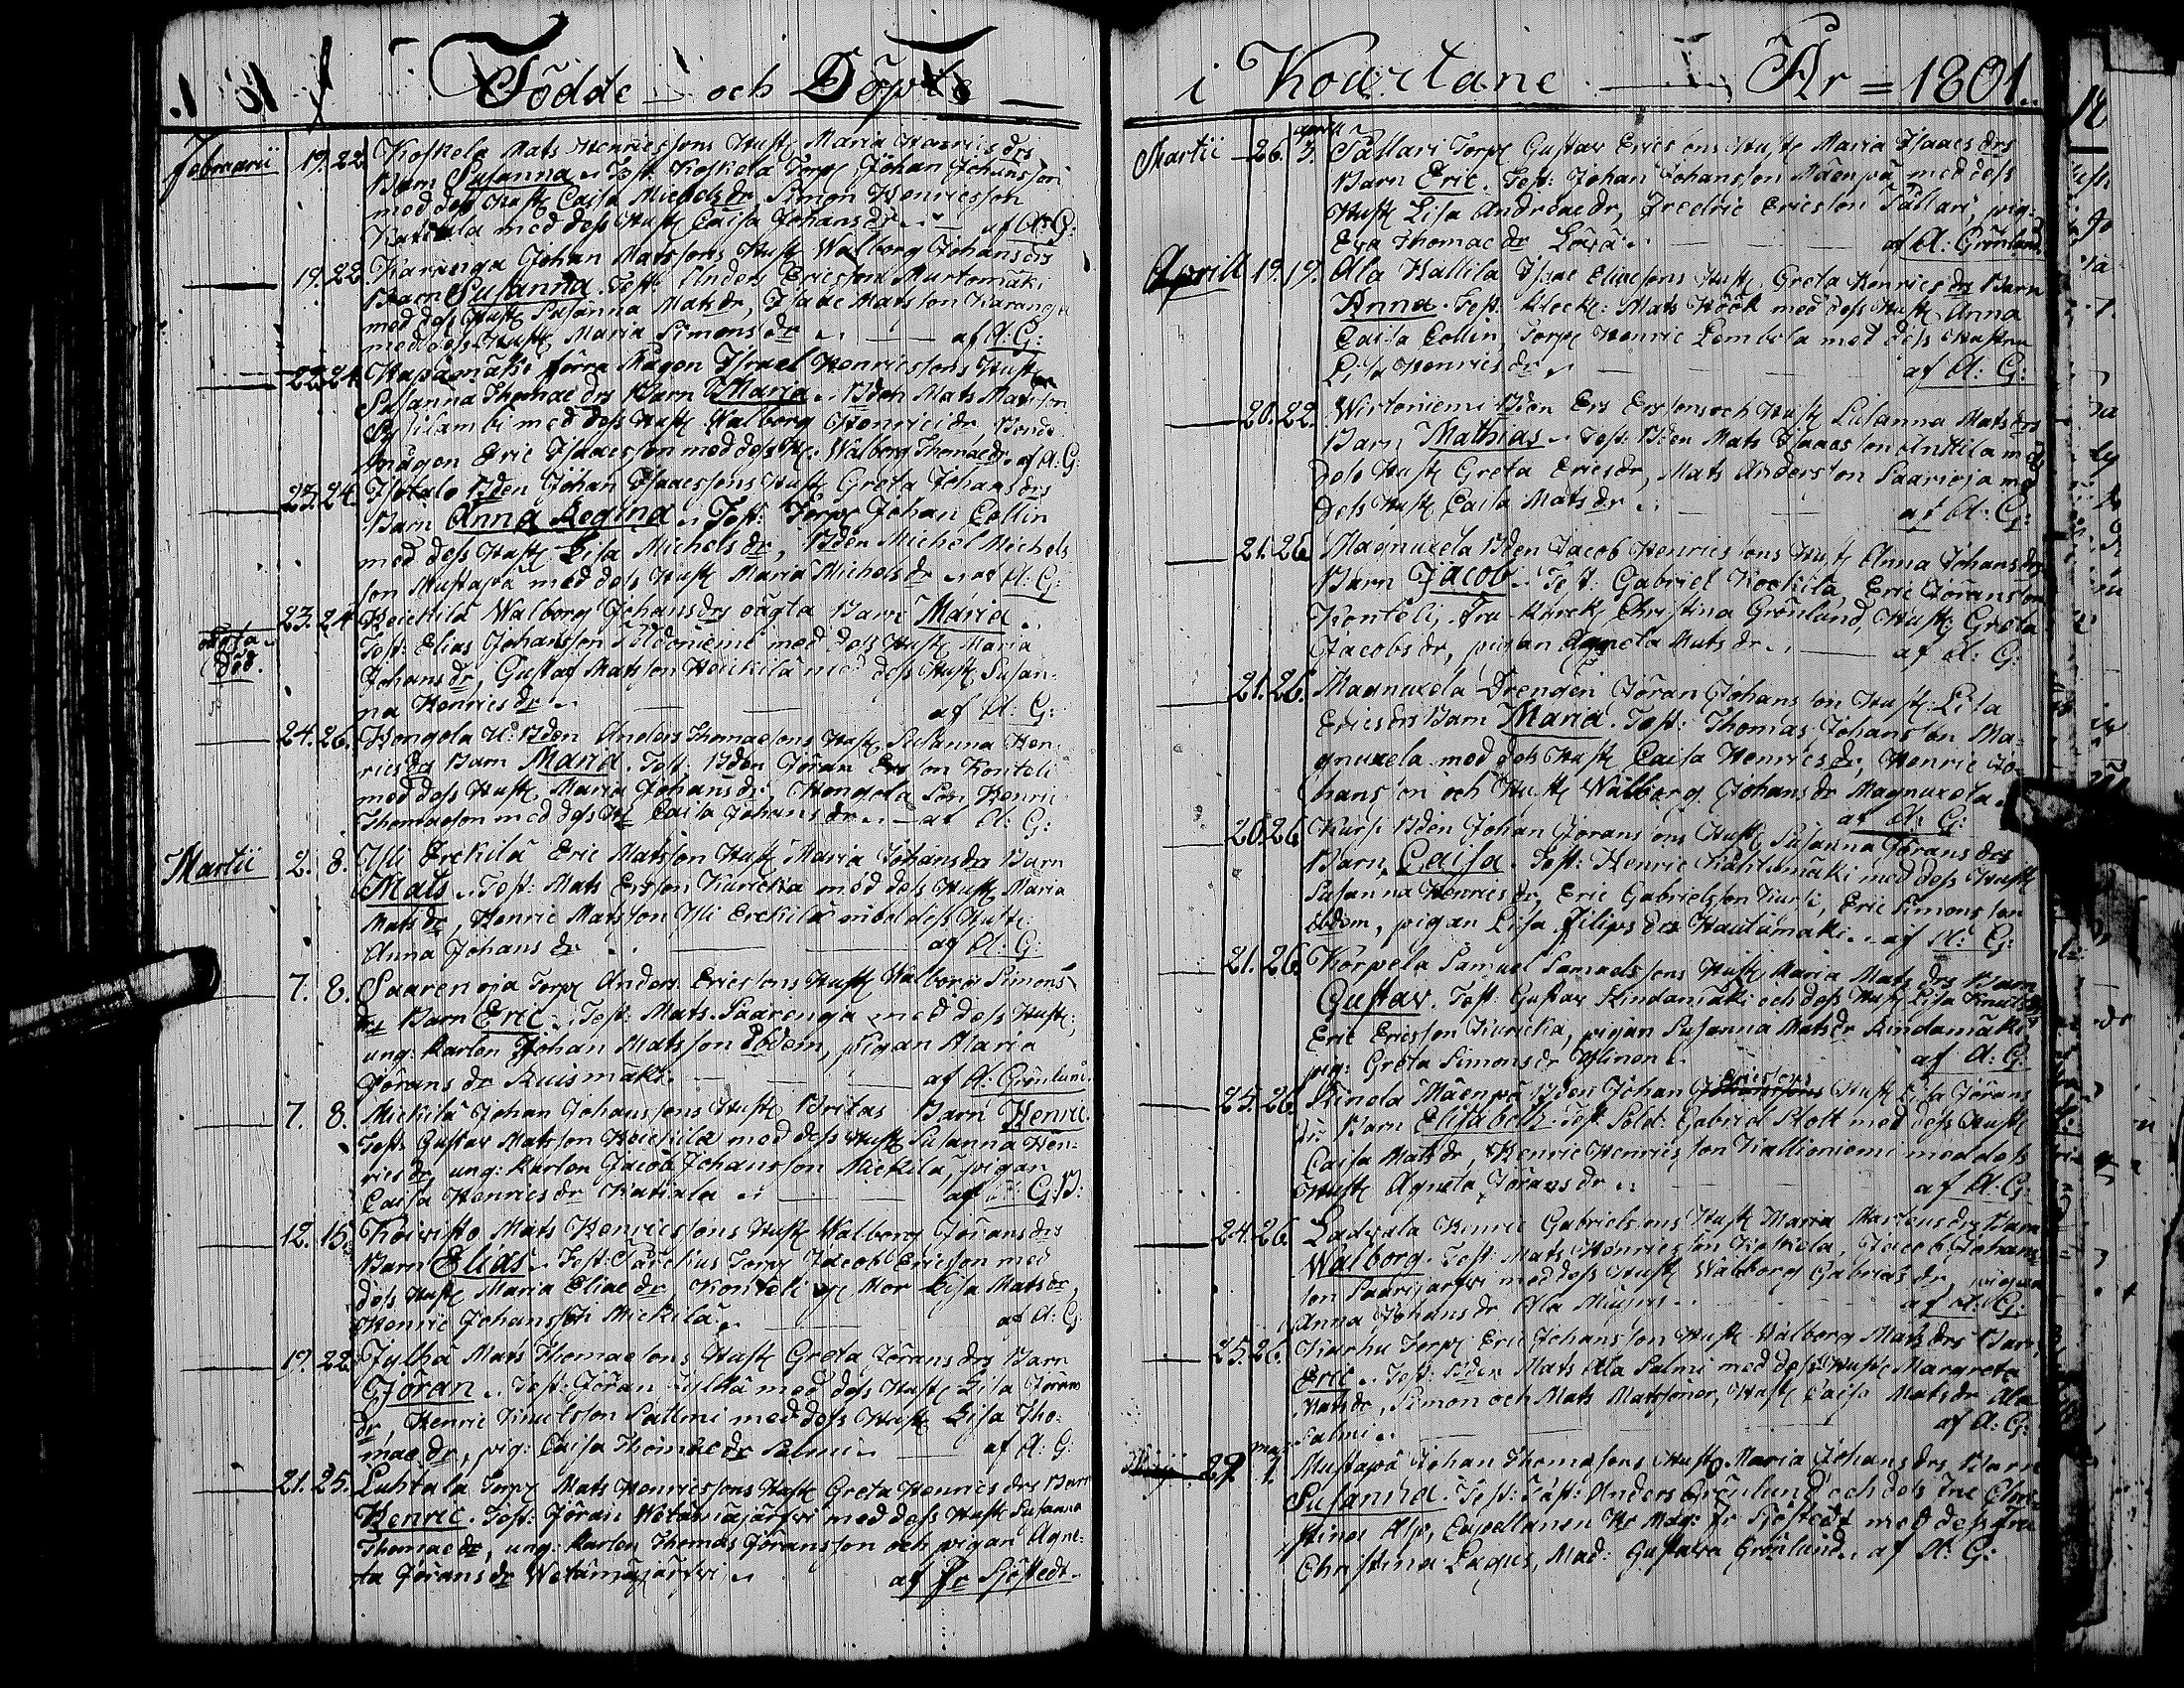 Födde och Döpte
Februarii 19. 22. Koskela Mats Henricssons Hust: Maria Henrics drs
Barn Susanna. Test: Koskela Torp: Johan Johansson
med dess Hust: Caisa Michels dr, Simon Henricsson
med dess Hust: Caisa Johans dr. af A: G:
19. 22. Karanga Johan Matssons Hust: Walborg Johans drs
Barn Susanna. Test: Anders Ericsson Murtomäki
med dess Hust: Susanna Mats dr, Isaac Matsson Karanga
med dess Hust: Maria Simons dr af A: G:
22. 24. Hapamäki förra Mågen Israel Henricssons Hust:
Susanna Thomae drs Barn Maria. Bden Mats Matsson
med dess Hust: Walborg Henrici dr, Bonde
mågen Eric Isaacsson med dess H: Walborg Thomae dr. af A: G:
23. 24. Isotalo Bden Johan Isaacssons Hust: Greta Johans drs
Barn Anna Regina. Test: Torp: Johan Collin
med dess Hust: Lisa Michels dr, Bden Michel Michels
son Mustapä med dess Hust: Maria Michels dr af A: G:
23. 24. Heickilä Walborg Johans drs oägta Barn Maria.
Test: Elias Johansson med dess Hust: Maria
död. Johans dr, Gustaf Matsson Heickilä med dess Hust: Susan-
na Henrics dr. af A: G:
24. 26. Hongola Bden Anders Thomaesons Hust: Susanna Hen-
rics drs Barn Maria. Test: Bden Jöran Ersson Konteli
med dess Hust: Maria Johans dr, Hongola Son Henric
Thomaeson med dess H: Caisa Johans dr. af A: G:
Martii 2. 8. Yli Erckilä Eric Matsson Hust: Maria Johans drs Barn
Mats. Test: Mats Ersson Kuricka med dess Hust: Maria
Mats dr, Henric Matsson Yli Erckilä dess Hust:
Anna Johans dr af A: G:
7. 8. Saarenoja Torp: Anders Ericssons Hust: Walborg Simons
drs Barn Eric. Test: Mats Saarenoja med dess Hust:
ung: Karlen Johan Matsson Ibdem, Pigan Maria
Jörans dr Ruismäki. af A: Grönlund.
7. 8. Mickilä Johan Johanssons Hust: Britas Barn Henric.
Test: Gustav Matsson Heickilä med dess Hust: Susanna Hen-
rics dr, ung: Karlen Jacob Johansson Mickilä, pigan
Caisa Henrics dr af
12. 15. Koivisto Mats Henricssons Hust: Walborg Jörans drs
Barn Elias. Test: Torp: Jacob Ericsson med
dess Hust: Maria Eliae dr, Konteli Mor Lisa Mats dr,
Henric Johansson Mickilä. af A: G:
19. 22. Jylhä Mats Thomaesons Hust: Greta Jörans drs Barn
Jöran. Test: Jöran Jylhä med dess Hust: Lisa Jörans
dr, Henric Knutsson Salmi med dess Hust: Lisa Tho-
mae dr, pig: Caisa Thomae dr Salmi. af A: G:
21. 25. Luhtala Torp: Mats Henricssons Hust: Greta Henrics drs Barn
Henric. Test: Jöran Wetämäjärfvi med dess Hust: Susanna
Thomae dr, ung: Karlen Thomas Jöransson och pigan Agne-
ta Jörans dr Wetämäjärfvi. af Fr Sjöstedt.
i Kouritane År = 1801.
Martii 26. april 3. Pällari Torp: Gustav Ericssons Hust: Maria Isaacs drs
Barn Eric. Test: Johan Johansson Mäenpä med dess
Hust: Lisa Andreae dr, Fredric Ericsson Pällari, pig:
Eva Thomae dr af A: Grönlund
Aprill 19. 19. Ala Hallila Isaac Eliaesons Hust: Greta Henrics drs Barn
Anna. Test: Klock: Mats Höök med dess Hust: Anna
Caisa Collin, Torp: Henric Lembola med dess Hustru
Lisa Henrics dr. af A: G:
20. 22. Wirtoniemi Bden Ers Erssons och Hust: Susanna Mats drs
Barn Mathias. Test: Bden Mats Isaacsson Antila med
dess Hust: Greta Erics dr, Mats Andersson Saarioja med
dess Hust: Caisa Mats dr. af A: G:
21. 26. Magnuxela Bden Jacob Henricssons Hust: Anna Johans drs
Barn Jacob. Test: Gabriel Kockila, Eric Jöransson
Konteli, Fru Christina Grönlund, Hust: Greta
Jacobs dr, pigan Agneta Mats dr. af A: G:
21. 26. Magnuxela Drengen Jöran Johansson Hust: Lisa
Erics drs Barn Maria. Test: Thomas Johansson Ma-
gnuxela med dess Hust: Caisa Henrics dr, Henric Jo-
hansson och Hust: Walborg Johans dr Magnuxela.
af A: G:
20. 26. Kursi Bden Johan Jöranssons Hust: Susanna Jörans drs
Barn Caisa. Test: Henric med dess Hust:
Susanna Henrics dr, Eric Gabrielsson Kursi, Eric Simonsson
Ibdem, pigan Lisa Filips drs Hautamäki. af A: G:
21. 26. Korpela Samuel Samuelssons Hust: Maria Mats drs Barn
Gustav. Test: Gustav Rindamäki och dess Hust: Lisa Knuts
Eric Ericsson Kuricka, pigan Susanna Mats dr Rindamäki
pig: Greta Simons dr af A: G:
25. 26. Rinola Mäenpä Bden Johan Ericssons Hust: Lisa Jörans
dr Barn Elisabeth. Test: Sold: Gabriel Stolt med dess Hust:
Caisa Mats dr, Henric Henricsson Kallioniemi med dess
Hust: Agneta Jörans dr. af A: G:
24. 26. Ladvala Henric Gabrielssons Hust: Maria Martens drs Barn
Walborg. Test: Mats Henricsson Koskela, Jacob Johans-
son Saarijärfvi med dess Hust: Walborg Gabriels dr, pigan
Anna Johans dr Ala af A: G:
25. 26. Karhu Torp: Eric Johansson Hust: Walborg Mats drs Barn
Eric. Test: Bden Mats Ala Salmi med dess Hust: Margreta
Mats dr, Simon och Mats Matssöner, Hust: Caisa Mats dr Ala
Salmi. af A: G:
29. maj 1. Mustapä Johan Thomasons Hust: Maria Johans drs Barn
Susanna. Test: Anders Grönlund och dess Fru Chri-
stina Alp, Capellanen Hr Mag: Fr Sjöstedt med dess Fru
Christina Lagus, Mad: Gustava Grönlund. af A: G: